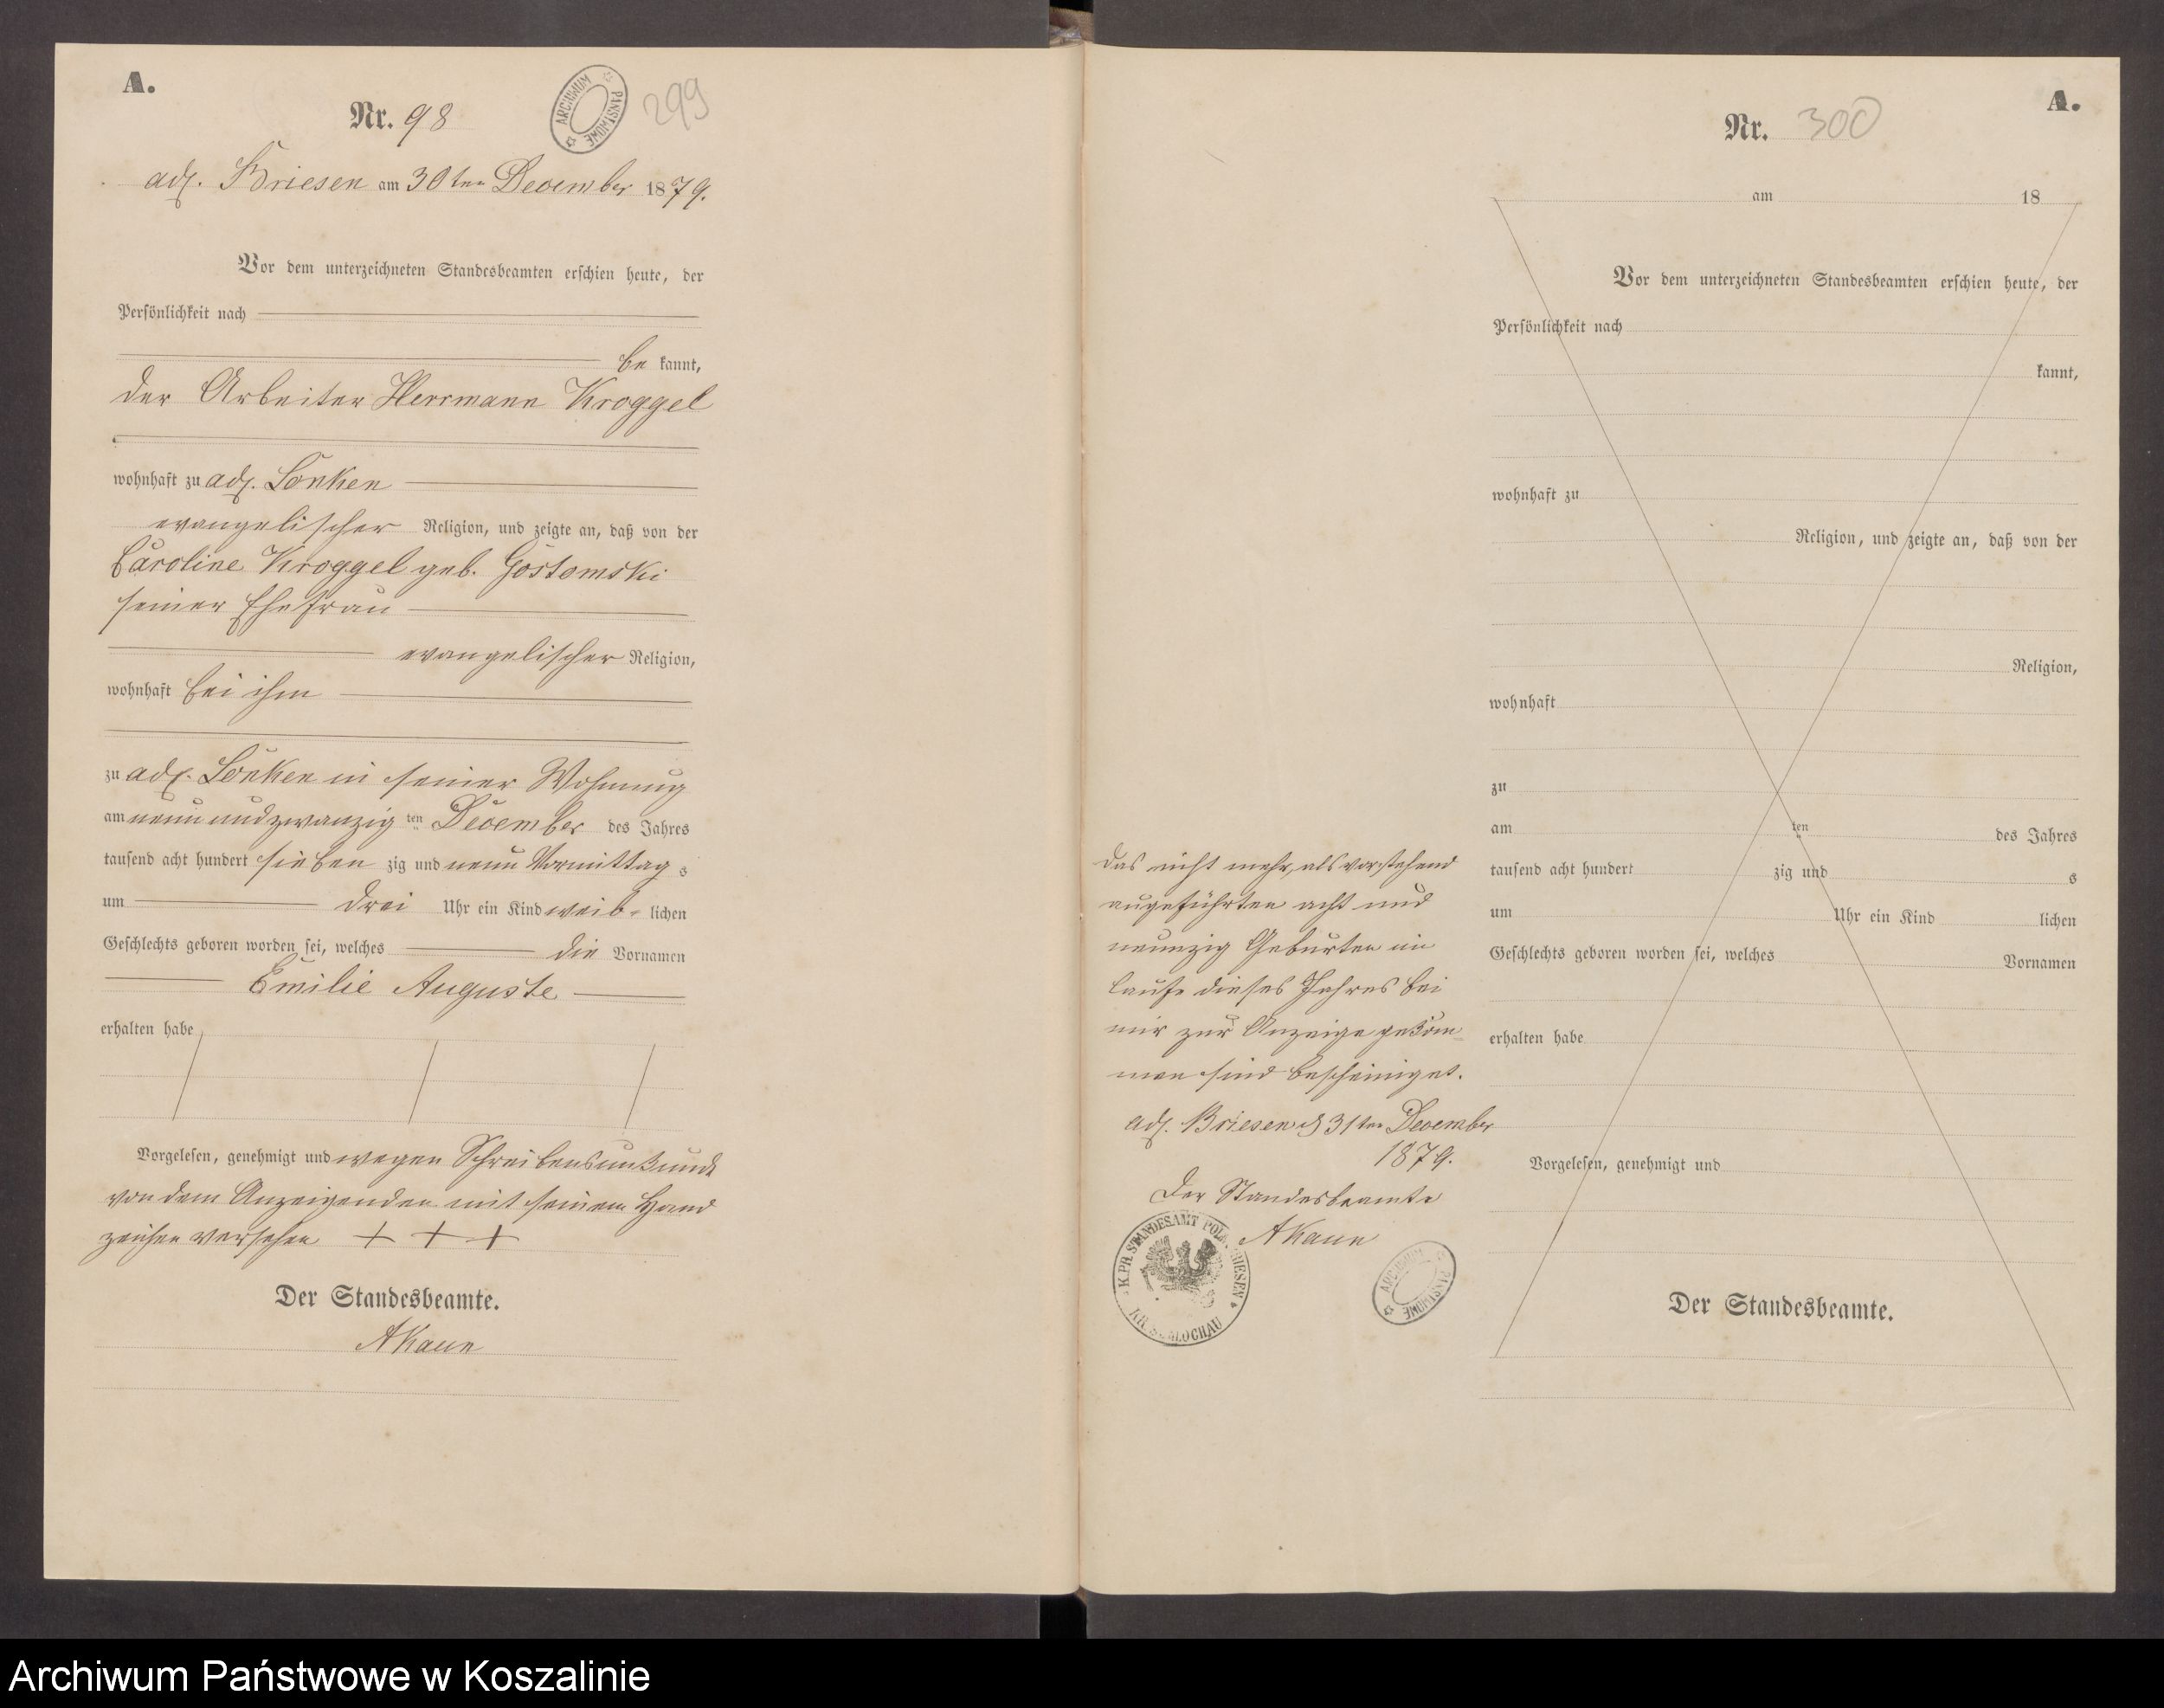 A.
Nr. 98
ARCHIWUM PAŃSTWOWE
299
adl. Briesen am 30ten December 1879.
Vor dem unterzeichneten Standesbeamten erschien heute, der
Persönlichkeit nach
be kannt,
der Arbeiter Herrmann Kroggel
wohnhaft zu adl. Lonken
evangelischer Religion, und zeigte an, daß von der
Caroline Kroggel geb. Gostomski
seiner Ehefrau
evangelischer Religion,
wohnhaft bei ihm
zu adl. Lonken in seiner Wohnung
am neun und zwanzig ten December des Jahres
tausend acht hundert sieben zig und neun Vormittag s
um drei Uhr ein Kind weib- lichen
Geschlechts geboren worden sei, welches die Vornamen
Emilie Auguste
erhalten habe
Vorgelesen, genehmigt und wegen Schreibensunkunde
von dem Anzeigenden mit seinem Hand
zeichen versehen + + +
Der Standesbeamte.
A Kaun
Das nicht mehr, als vorstehend
aufgeführten acht und
neunzig Geburten im
Laufe dieses Jahres bei
mir zur Anzeige gekom
men sind bescheiniget.
adl. Briesen d 31ten December
1879.
Der Standesbeamte
A Kaun
K. PR. STANDESAMT POLN. BRIESEN
KR. SCHLOCHAU
ARCHIWUM PAŃSTWOWE
A.
Nr. 300
am 18
Vor dem unterzeichneten Standesbeamten erschien heute, der
Persönlichkeit nach
kannt,
wohnhaft zu
Religion, und zeigte an, daß von der
Religion,
wohnhaft
zu
am ten des Jahres
tausend acht hundert zig und s
um Uhr ein Kind lichen
Geschlechts geboren worden sei, welches Vornamen
erhalten habe
Vorgelesen, genehmigt und
Der Standesbeamte.
Archiwum Państwowe w Koszalinie